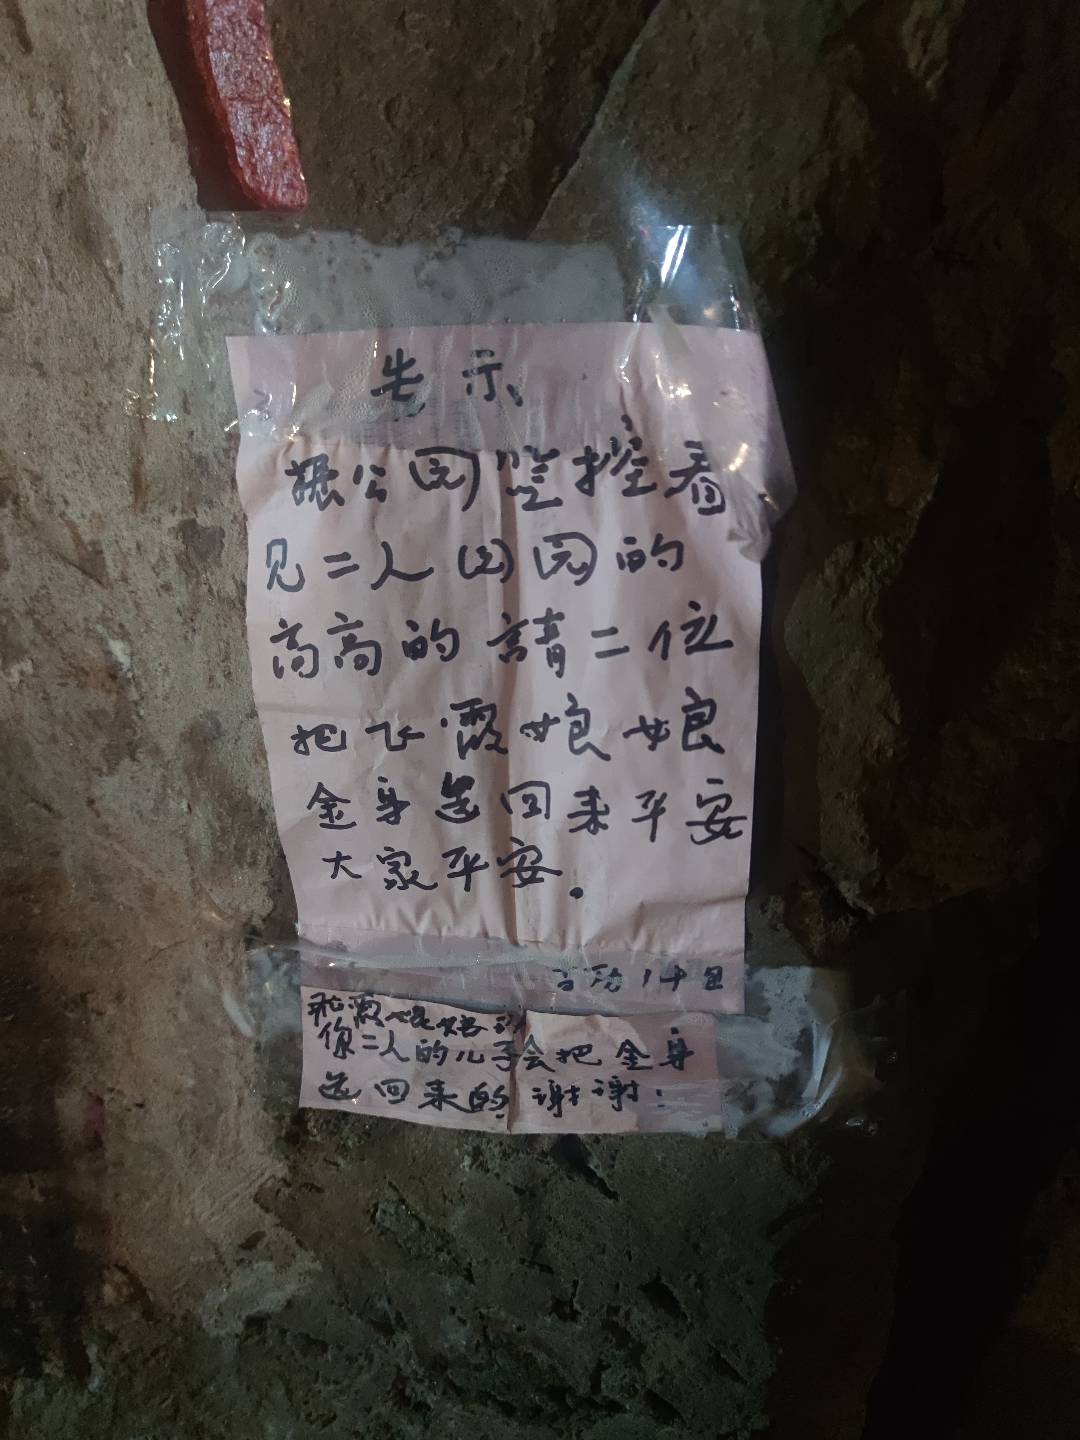 告示
公园监控看
见二人园园的
高高的請二位
把飞霞娘娘
金身送回来平安
大家平安。
你二人的儿子会把金身
送回来的谢谢: